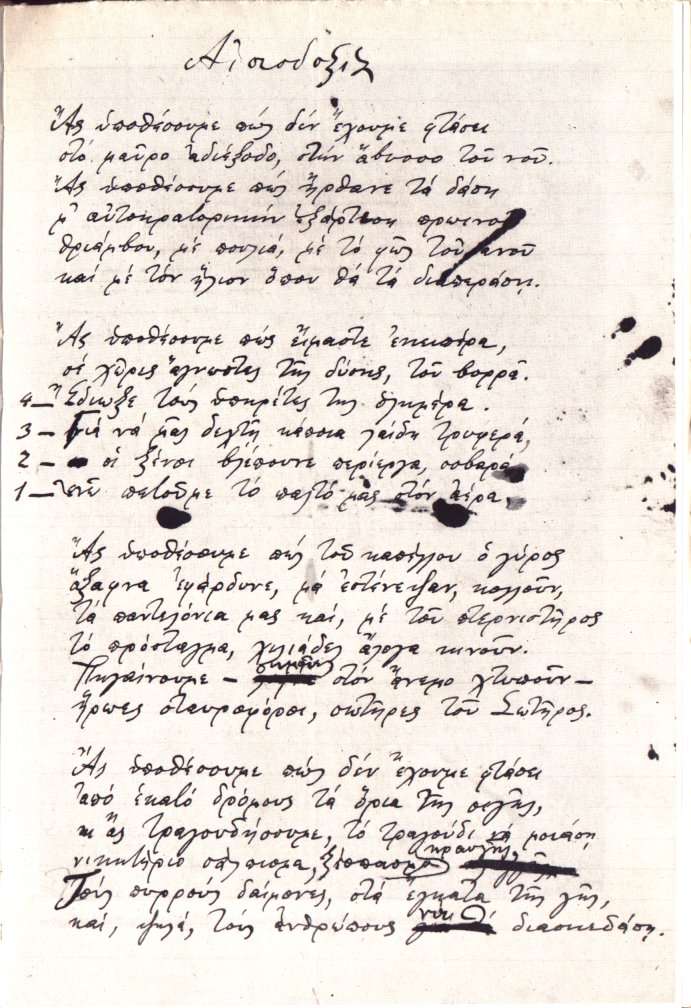 Αἰσιοδοξία
Ἄς ὑποθέσουμε πώς δέν ἔχουμε φτάσει
στό μαῦρο ἀδιέξοδο, στήν ἄβυσσο τοῦ νοῦ.
Ἄς ὑποθέσουμε πώς ἤρθανε τά δάση
μ' αὐτοκρατορικήν ἐξάρτιση πρωινοῦ
θριάμβου, μέ πουλιά, μέ τό φῶς τοῦ οὐρανοῦ
καί μέ τόν ἥλιον ὅπου θά τά διαπεράση.
Ἄς ὑποθέσουμε πώς εἴμαστε ἐκειπέρα,
σέ χῶρες ἄγνωστες τῆς δύσης, τοῦ βορρᾶ.
4 – Ἔδιωξε τούς ὑπηρέτες της ὁλημέρα.
3 – Γιά νά μᾶς δεχτῆ κάποια λαίδη τρυφερά,
2 – οἱ ξένοι βλέπουνε περίεργα, σοβαρά
1 – Ἐνῶ πετοῦμε τό παλτό μας στόν ἀέρα,
Ἄς ὑποθέσουμε πώς τοῦ καπέλλου ὁ γύρος
ἄξαφνα ἐφάρδυνε, μά ἐστένεψαν, κολλοῦν,
τά παντελόνια μας καί, μέ τοῦ πτερνιστῆρος
τό πρόσταγμα, χιλιάδες ἄλογα κινοῦν.
Πηγαίνουμε – σημαῖες στόν ἄνεμο χτυποῦν –
ἥρωες σταυροφόροι, σωτῆρες τοῦ Σωτῆρος.
Ἄς ὑποθέσουμε πώς δέν ἔχουμε φτάσει
ἀπό ἑκατό δρόμους τά ὅρια τῆς σιγῆς,
κι ἄς τραγουδήσουμε, τό τραγούδι νά μοιάση
νικητήριο σάλπισμα, ξέσπασμα κραυγῆς,
Τούς πυρρούς δαίμονες, στά ἔγκατα τῆς γῆς,
καί, ψηλά, τούς ἀνθρώπους νά διασκεδάση.